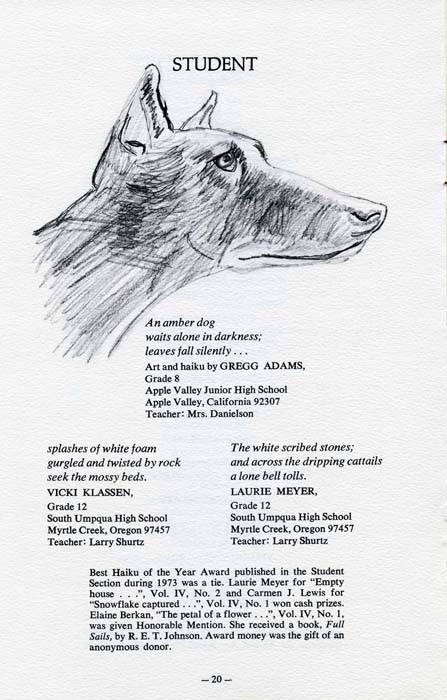 STUDENT
An amber dog
waits alone in darkness;
leaves fall silently . . .
Art and haiku by GREGG ADAMS,
Grade 8
Apple Valley Junior High School
Apple Valley, California 92307
Teacher: Mrs. Danielson
splashes of white foam
gurgled and twisted by rock
seek the mossy beds.
VICKI KLASSEN,
Grade 12
South Umpqua High School
Myrtle Creek, Oregon 97457
Teacher: Larry Shurtz
The white scribed stones;
and across the dripping cattails
a lone bell tolls.
LAURIE MEYER,
Grade 12
South Umpqua High School
Myrtle Creek, Oregon 97457
Teacher: Larry Shurtz
Best Haiku of the Year Award published in the Student
Section during 1973 was a tie. Laurie Meyer for “Empty
house . . .”, Vol. IV, No. 2 and Carmen J. Lewis for
“Snowflake captured . . .”, Vol. IV, No. 1 won cash prizes.
Elaine Berkan, “The petal of a flower . . .”, Vol. IV, No. 1,
was given Honorable Mention. She received a book, Full
Sails, by R. E. T. Johnson. Award money was the gift of an
anonymous donor.
– 20 –